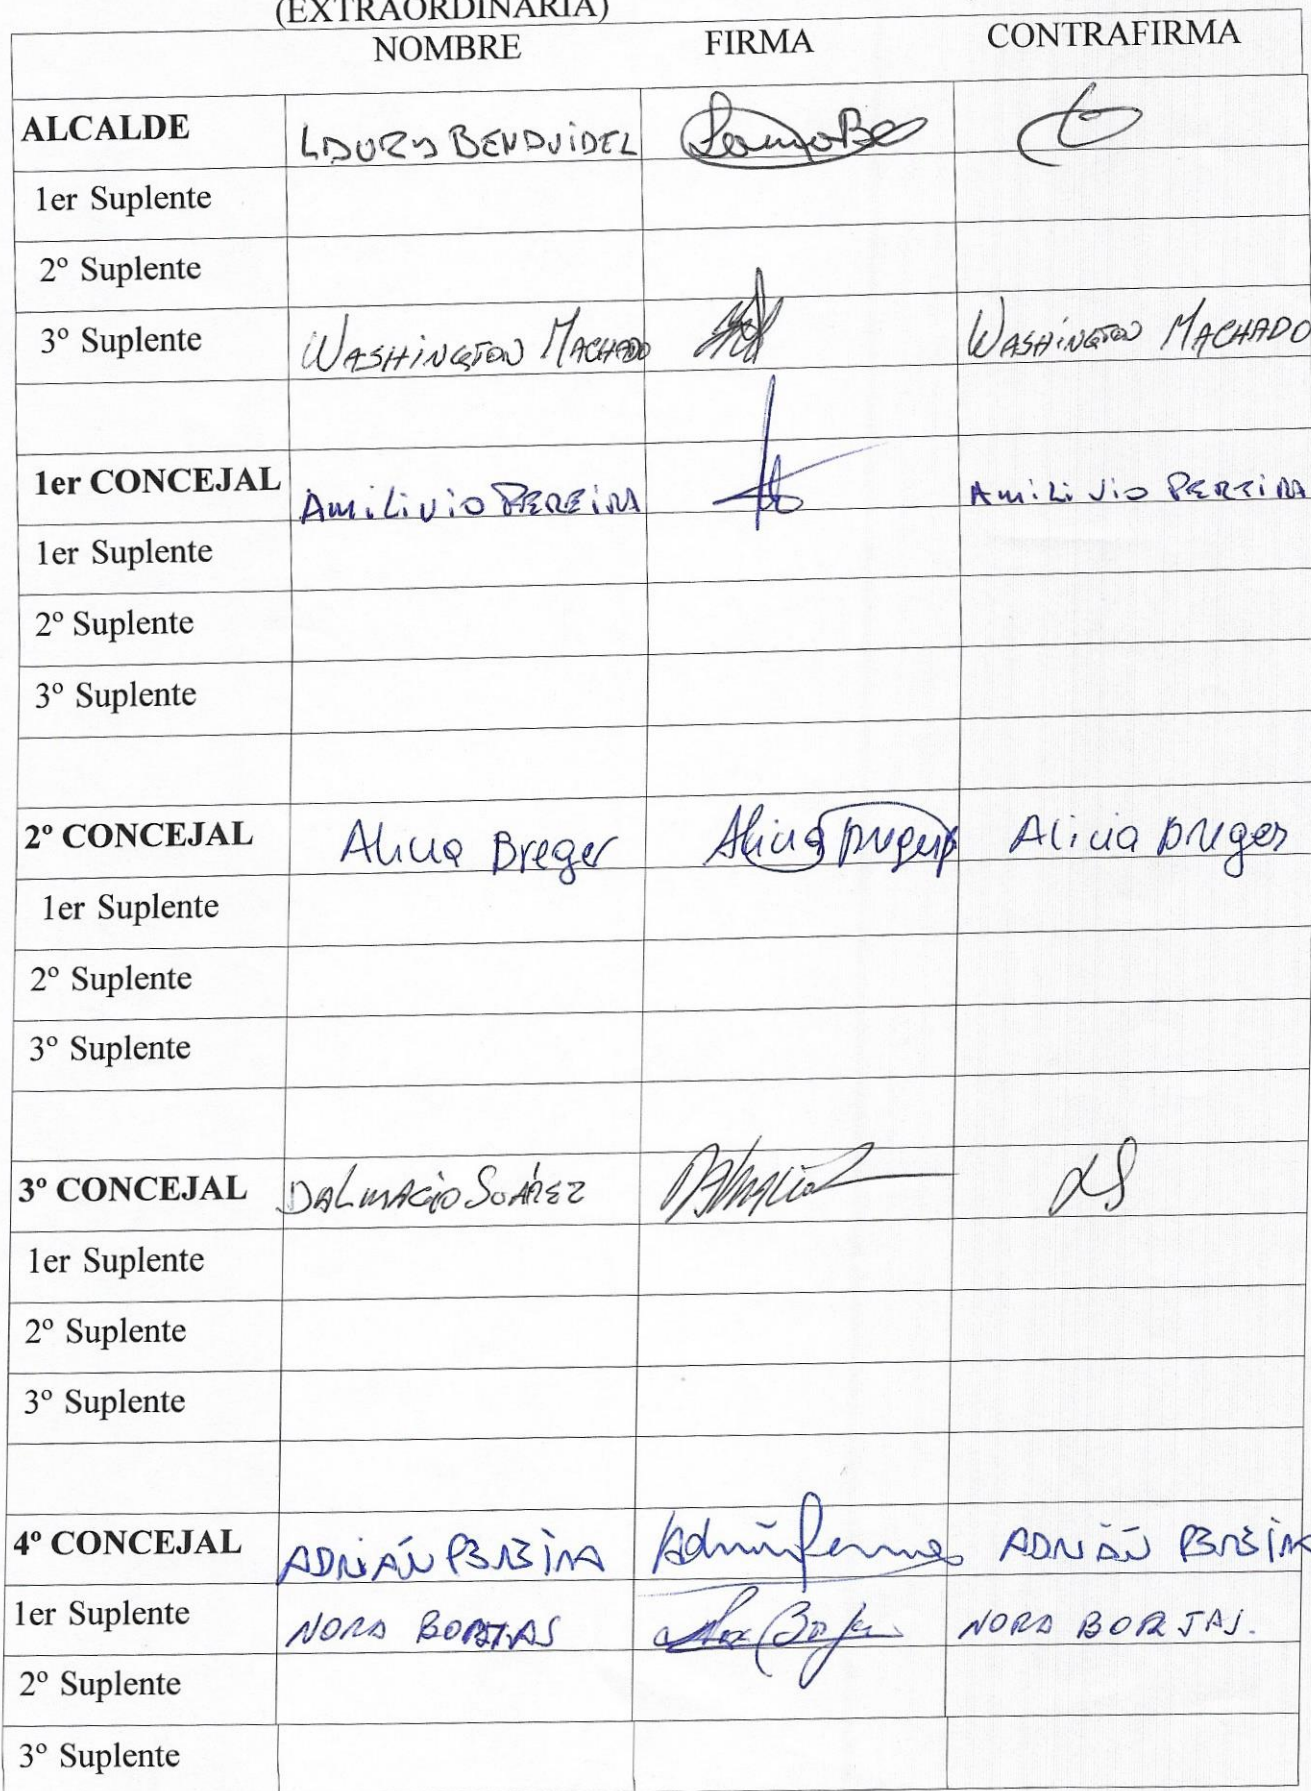 (EXTRAORDINARIA)
NOMBRE FIRMA CONTRAFIRMA
ALCALDE LAURA BENAVIDEZ
1er Suplente
2º Suplente
3º Suplente WASHINGTON MACHADO WASHINGTON MACHADO
1er CONCEJAL AMiLiViO PEREiRA AMiLiViO PEREiRA
1er Suplente
2º Suplente
3º Suplente
2º CONCEJAL Alicia Breger Alicia Breger Alicia Breger
1er Suplente
2º Suplente
3º Suplente
3º CONCEJAL DALMACIO SUÁREZ DS
1er Suplente
2º Suplente
3º Suplente
4º CONCEJAL ADRIÁN PEREIRA ADRIÁN PEREIRA
1er Suplente NORA BORJAS NORA BORJAS.
2º Suplente
3º Suplente